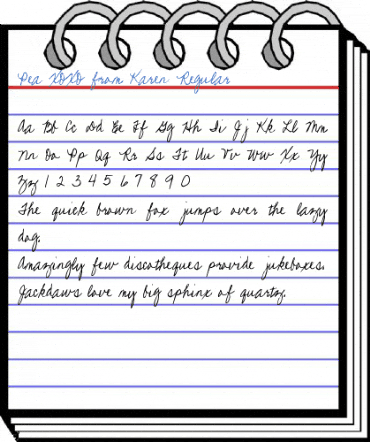 Pea XOXO from Karen Regular
Aa Bb Cc Dd Ee Ff Gg Hh Ii Jj Kk Ll Mm
Nn Oo Pp Qq Rr Ss Tt Uu Vv Ww Xx Yy
Zz 1 2 3 4 5 6 7 8 9 0
The quick brown fox jumps over the lazy
dog.
Amazingly few discotheques provide jukeboxes.
Jackdaws love my big sphinx of quartz.